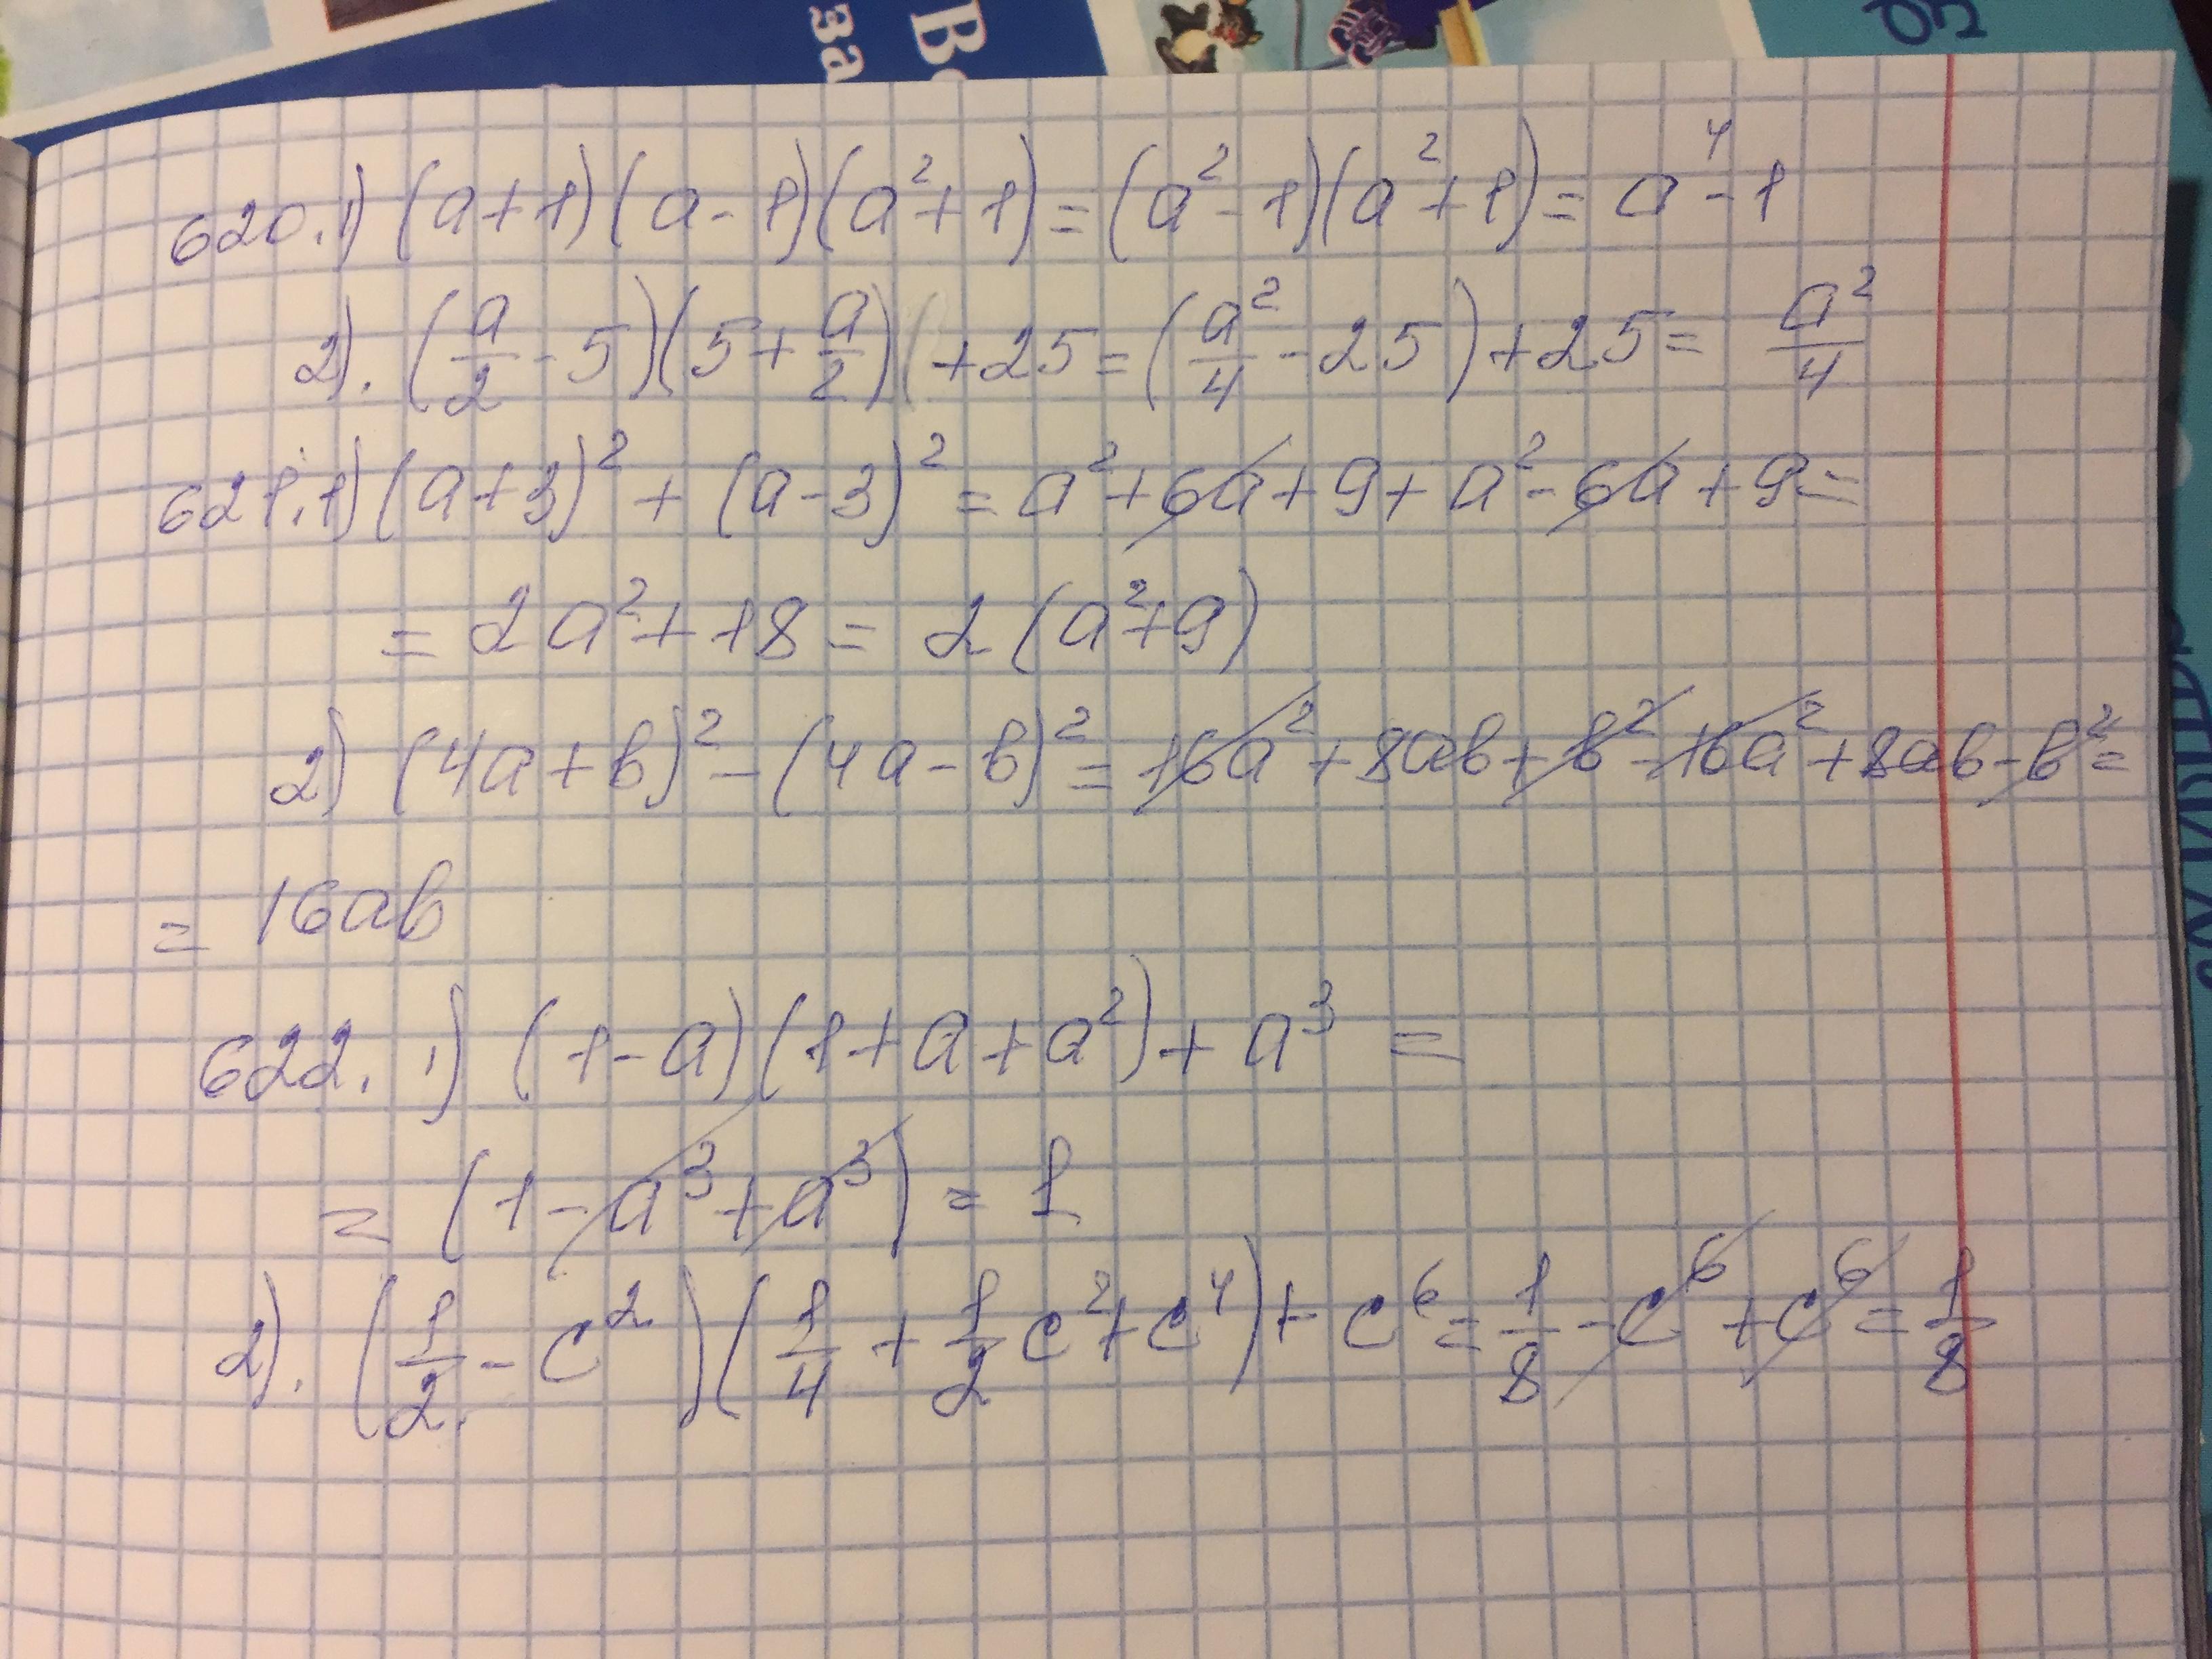 Во
за
620. 1) (a+1)(a-1)(a²+1)=(a²-1)(a²+1)= a⁴-1
2). (a/2 - 5)(5+a/2)(+25=(a²/4 - 25)+25= a²/4
621. 1) (a+3)² + (a-3)² = a²+6a+9+a²-6a+9=
= 2a²+18= 2(a²+9)
2) (4a+b)²-(4a-b)²=16a²+8ab+b²-16a²+8ab-b²=
= 16ab
622. 1) (1-a)(1+a+a²)+a³ =
= (1-a³+a³) = 1
2). (1/2 - c²)(1/4 + 1/2c²+c⁴)+c⁶=1/8-c⁶+c⁶=1/8